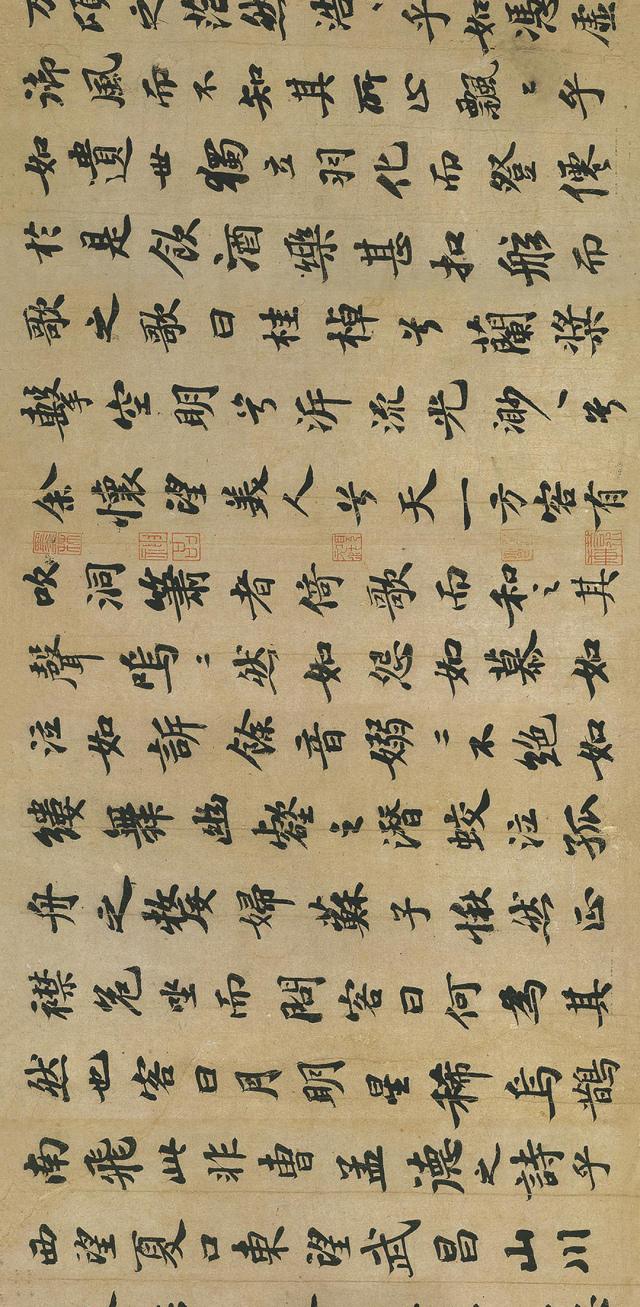 万頃之茫然浩〻乎如憑虛
御風而不知其所止飄〻乎
如遺世獨立羽化而登僊
於是飲酒樂甚扣舷而
歌之歌曰桂棹兮蘭槳
擊空明兮泝流光渺〻兮
余懷望美人兮天一方客有
吹洞簫者倚歌而和之其
聲嗚〻然如怨如慕如
泣如訴餘音嫋〻不絕如
縷舞幽壑之潛蛟泣孤
舟之嫠婦蘇子愀然正
襟危坐而問客曰何為其
然也客曰月明星稀烏鵲
南飛此非曹孟德之詩乎
西望夏口東望武昌山川